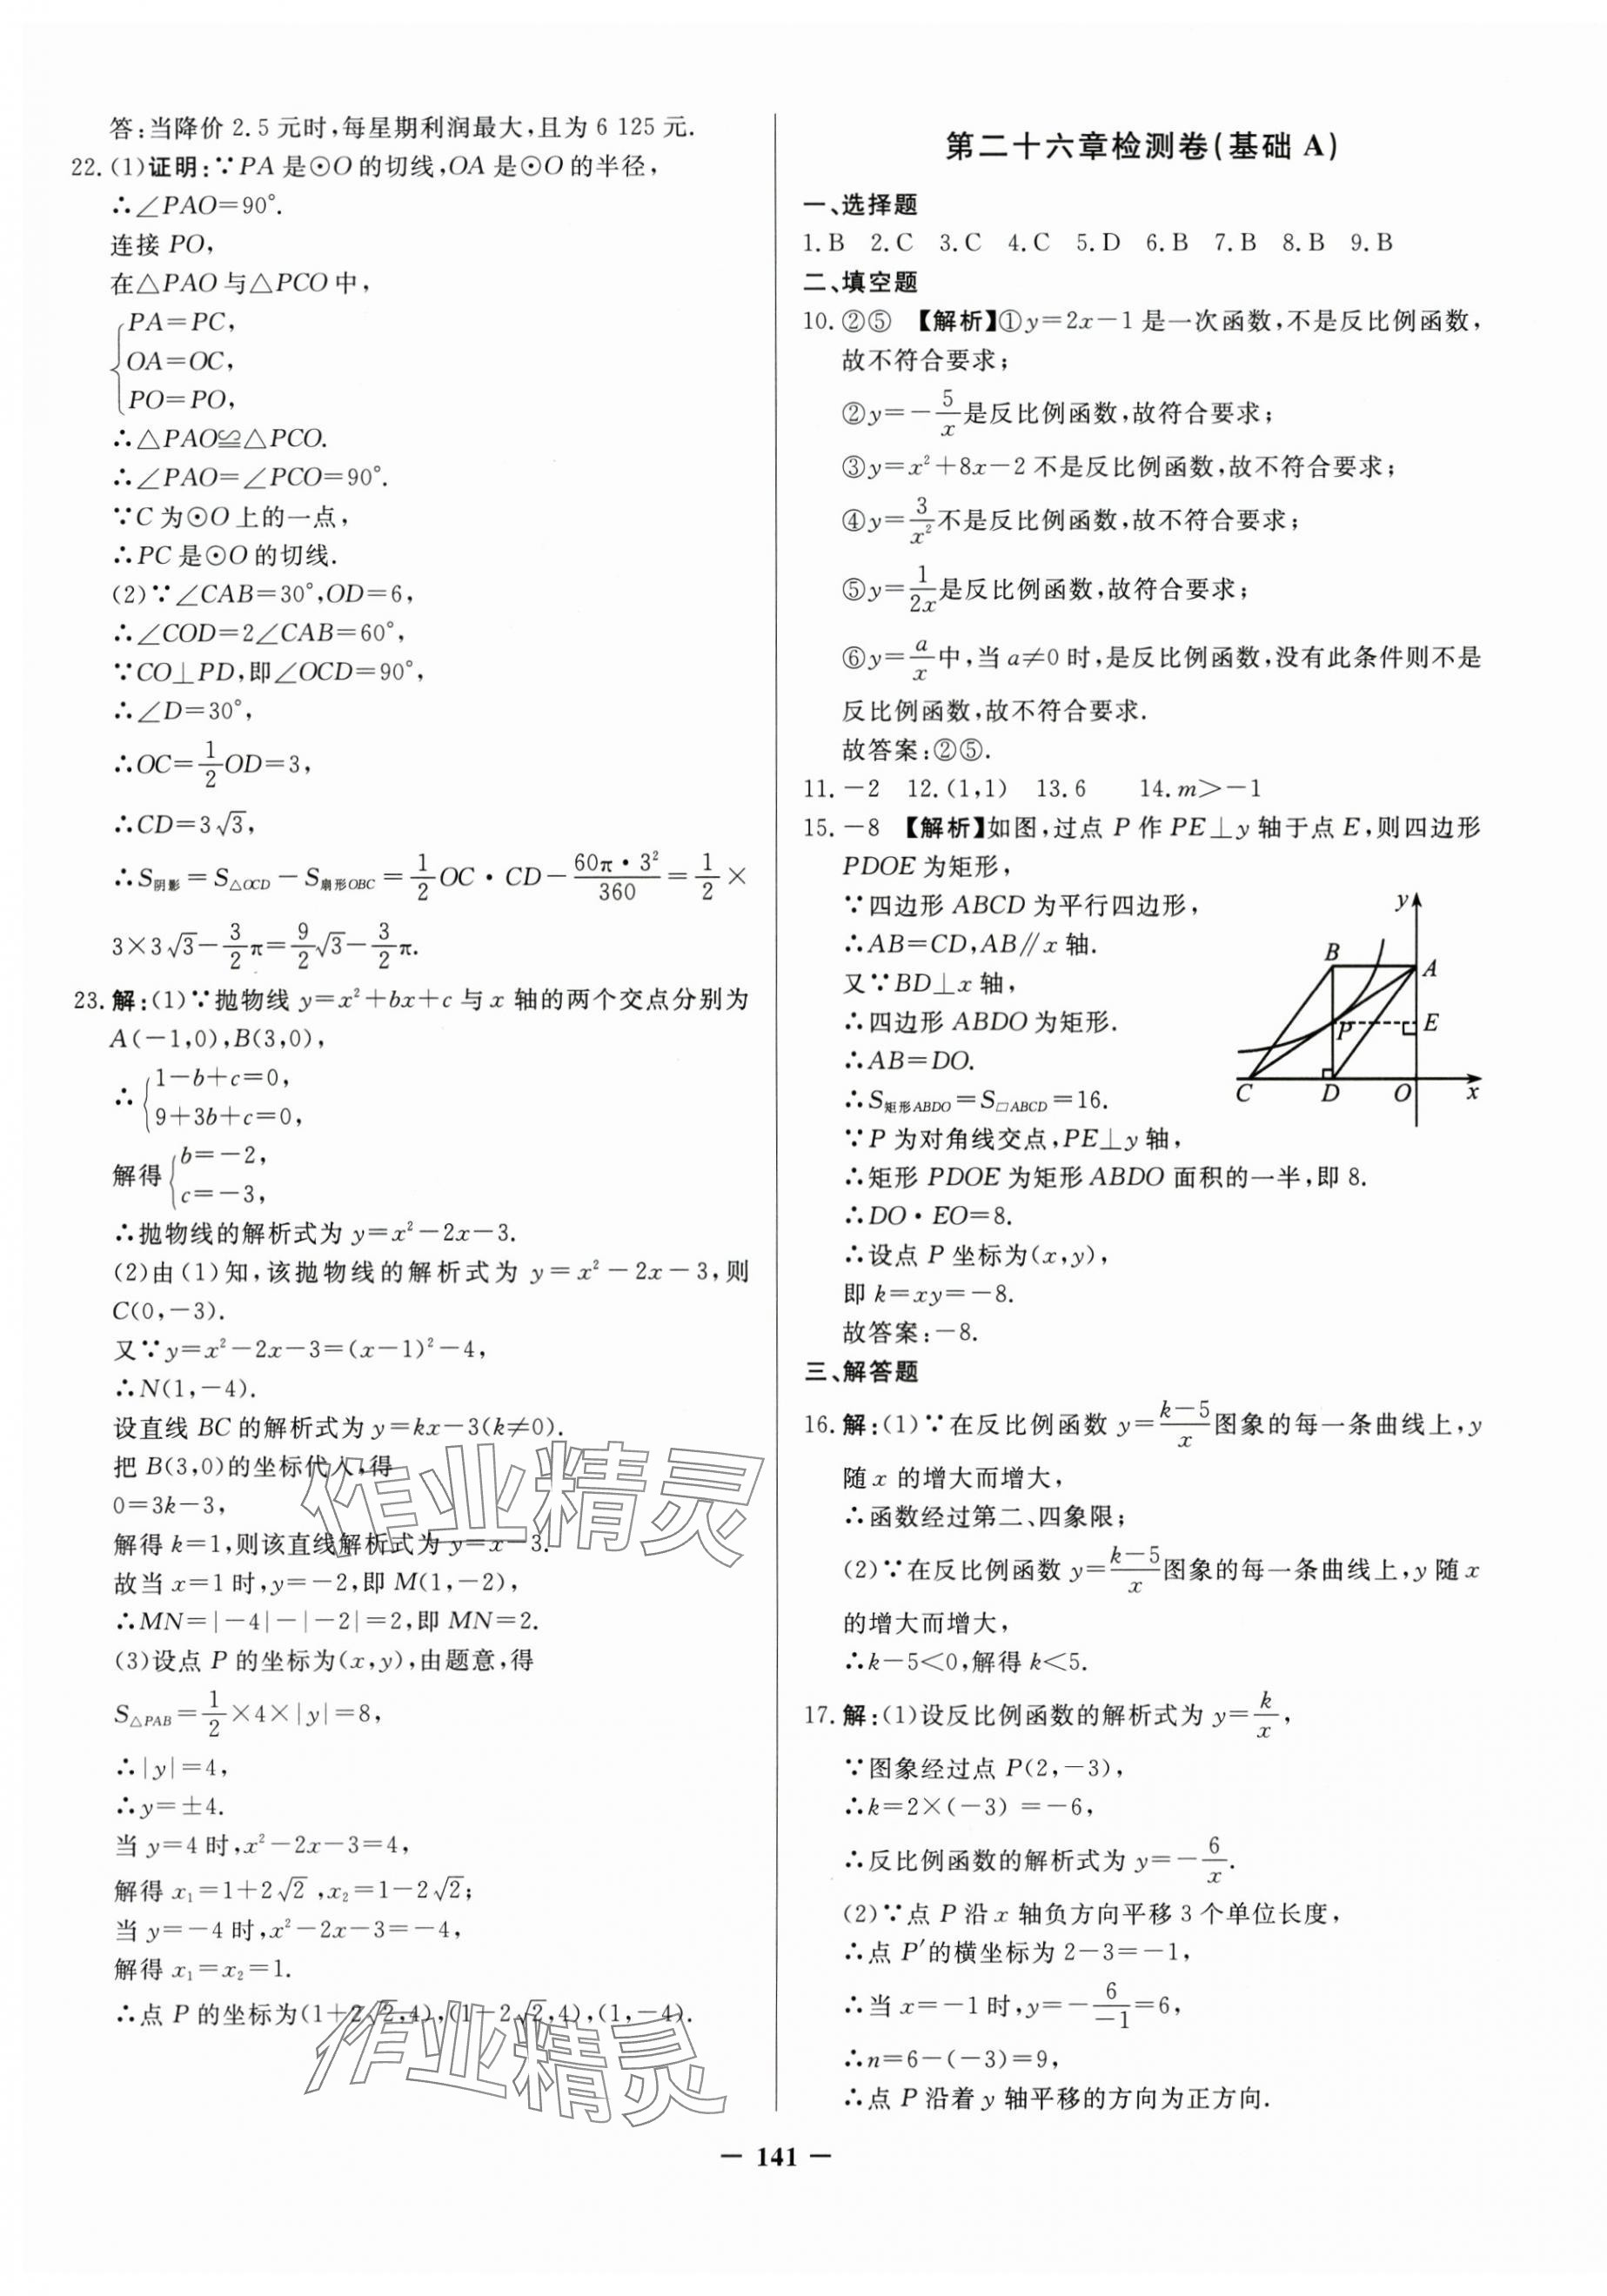 答:当降价 2.5 元时,每星期利润最大,且为 6 125 元.
22.(1)证明:∵PA 是⊙O 的切线,OA 是⊙O 的半径,
∴∠PAO=90°.
连接 PO,
在△PAO 与△PCO 中,
{PA=PC,
OA=OC,
PO=PO,
∴△PAO≌△PCO.
∴∠PAO=∠PCO=90°.
∵C 为⊙O 上的一点,
∴PC 是⊙O 的切线.
(2)∵∠CAB=30°,OD=6,
∴∠COD=2∠CAB=60°,
∵CO⊥PD,即∠OCD=90°,
∴∠D=30°,
∴OC=1/2 OD=3,
∴CD=3√3,
∴S阴影=S△OCD-S扇形OBC=1/2 OC·CD-60π·3²/360=1/2×
3×3√3-3/2π=9/2√3-3/2π.
23.解:(1)∵抛物线 y=x²+bx+c 与 x 轴的两个交点分别为
A(-1,0),B(3,0),
∴{1-b+c=0,
9+3b+c=0,
解得{b=-2,
c=-3,
∴抛物线的解析式为 y=x²-2x-3.
(2)由(1)知,该抛物线的解析式为 y=x²-2x-3,则
C(0,-3).
又∵y=x²-2x-3=(x-1)²-4,
∴N(1,-4).
设直线 BC 的解析式为 y=kx-3(k≠0).
把 B(3,0)的坐标代入,得
0=3k-3,
解得 k=1,则该直线解析式为 y=x-3.
故当 x=1 时,y=-2,即 M(1,-2),
∴MN=|-4|-|-2|=2,即 MN=2.
(3)设点 P 的坐标为(x,y),由题意,得
S△PAB=1/2×4×|y|=8,
∴|y|=4,
∴y=±4.
当 y=4 时,x²-2x-3=4,
解得 x₁=1+2√2,x₂=1-2√2;
当 y=-4 时,x²-2x-3=-4,
解得 x₁=x₂=1.
∴点 P 的坐标为(1+2√2,4),(1-2√2,4),(1,-4).
作业精灵
作业精灵
第二十六章检测卷(基础 A)
一、选择题
1.B 2.C 3.C 4.C 5.D 6.B 7.B 8.B 9.B
二、填空题
10.②⑤ 【解析】①y=2x-1 是一次函数,不是反比例函数,
故不符合要求;
②y=-5/x是反比例函数,故符合要求;
③y=x²+8x-2 不是反比例函数,故不符合要求;
④y=3/x²不是反比例函数,故不符合要求;
⑤y=1/2x是反比例函数,故符合要求;
⑥y=a/x中,当 a≠0 时,是反比例函数,没有此条件则不是
反比例函数,故不符合要求.
故答案:②⑤.
11.-2 12.(1,1) 13.6 14.m>-1
15.-8 【解析】如图,过点 P 作 PE⊥y 轴于点 E,则四边形
PDOE 为矩形,
∵四边形 ABCD 为平行四边形,
∴AB=CD,AB∥x 轴.
又∵BD⊥x 轴,
∴四边形 ABDO 为矩形.
∴AB=DO.
∴S矩形ABDO=S□ABCD=16.
∵P 为对角线交点,PE⊥y 轴,
∴矩形 PDOE 为矩形 ABDO 面积的一半,即 8.
∴DO·EO=8.
∴设点 P 坐标为(x,y),
即 k=xy=-8.
故答案:-8.
y
B
A
P
E
C
D
O
x
三、解答题
16.解:(1)∵在反比例函数 y=k-5/x图象的每一条曲线上,y
随 x 的增大而增大,
∴函数经过第二、四象限;
(2)∵在反比例函数 y=k-5/x图象的每一条曲线上,y 随 x
的增大而增大,
∴k-5<0,解得 k<5.
17.解:(1)设反比例函数的解析式为 y=k/x,
∵图象经过点 P(2,-3),
∴k=2×(-3)=-6,
∴反比例函数的解析式为 y=-6/x.
(2)∵点 P 沿 x 轴负方向平移 3 个单位长度,
∴点 P′的横坐标为 2-3=-1,
∴当 x=-1 时,y=-6/-1=6,
∴n=6-(-3)=9,
∴点 P 沿着 y 轴平移的方向为正方向.
— 141 —